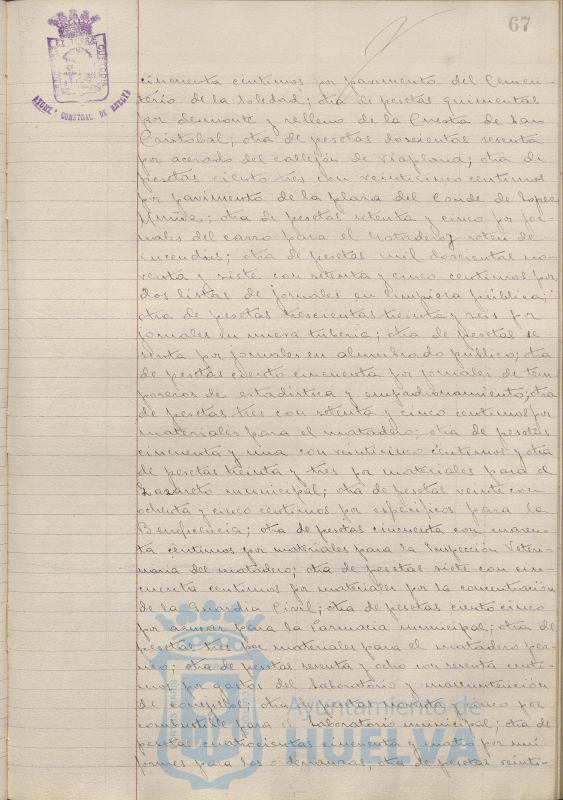 67
AYUNT. CONSTNAL. DE HUELVA
cincuenta céntimos por pavimento del Cemen-
terio de la Soledad; otra de pesetas quinientas
por desmonte y relleno de la Cuesta de San
Cristobal; otra de pesetas doscientas sesenta
por acerado del callejón de Viaplana; otra de
pesetas ciento tres con veinticinco centimos
por pavimento de la plaza del Conde de Lopez
Muñoz; otra de pesetas setenta y cinco por jor-
nales del carro para el Matadero y reten de
incendios; otra de pesetas mil doscientas no-
venta y siete con setenta y cinco centimos por
dos listas de jornales en limpieza pública;
otra de pesetas trescientas treinta y seis por
jornales en nueva tuberia; otra de pesetas se-
senta por jornales en alumbrado público; otra
de pesetas ciento cincuenta por jornales de tem-
poreros de estadistica y empadronamiento; otra
de pesetas tres con setenta y cinco centimos por
materiales para el matadero; otra de pesetas
cincuenta y una con veinticinco centimos y otra
de pesetas treinta y tres por materiales para el
Lazareto municipal; otra de pesetas veinte con
ochenta y cinco centimos por especificos para la
Beneficencia; otra de pesetas cincuenta con cuaren-
ta céntimos por materiales para la Inspección Veteri-
naria del matadero; otra de pesetas siete con cin-
cuenta centimos por materiales por la concentración
de la Guardia Civil; otra de pesetas ciento cinco
por azucar para la Farmacia municipal; otra de
pesetas tres por materiales para el matadero
otra de pesetas sesenta y ocho con sesenta centi-
mos por gastos del Laboratorio y manutención
de conejillos; otra de pesetas noventa y cinco por
combustible para el Laboratorio municipal; otra de
pesetas cuatrocientas cincuenta y cuatro por uni-
formes para los ordenanzas; otra de pesetas veinti-
Ayuntamiento de
HUELVA